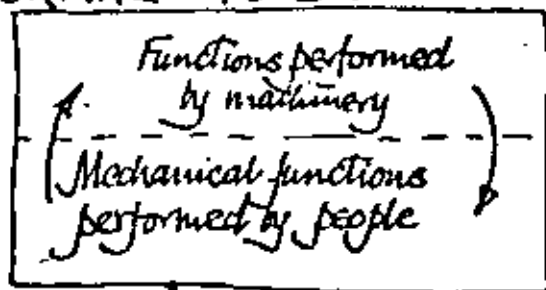 Functions performed
by machinery
Mechanical functions
performed by people